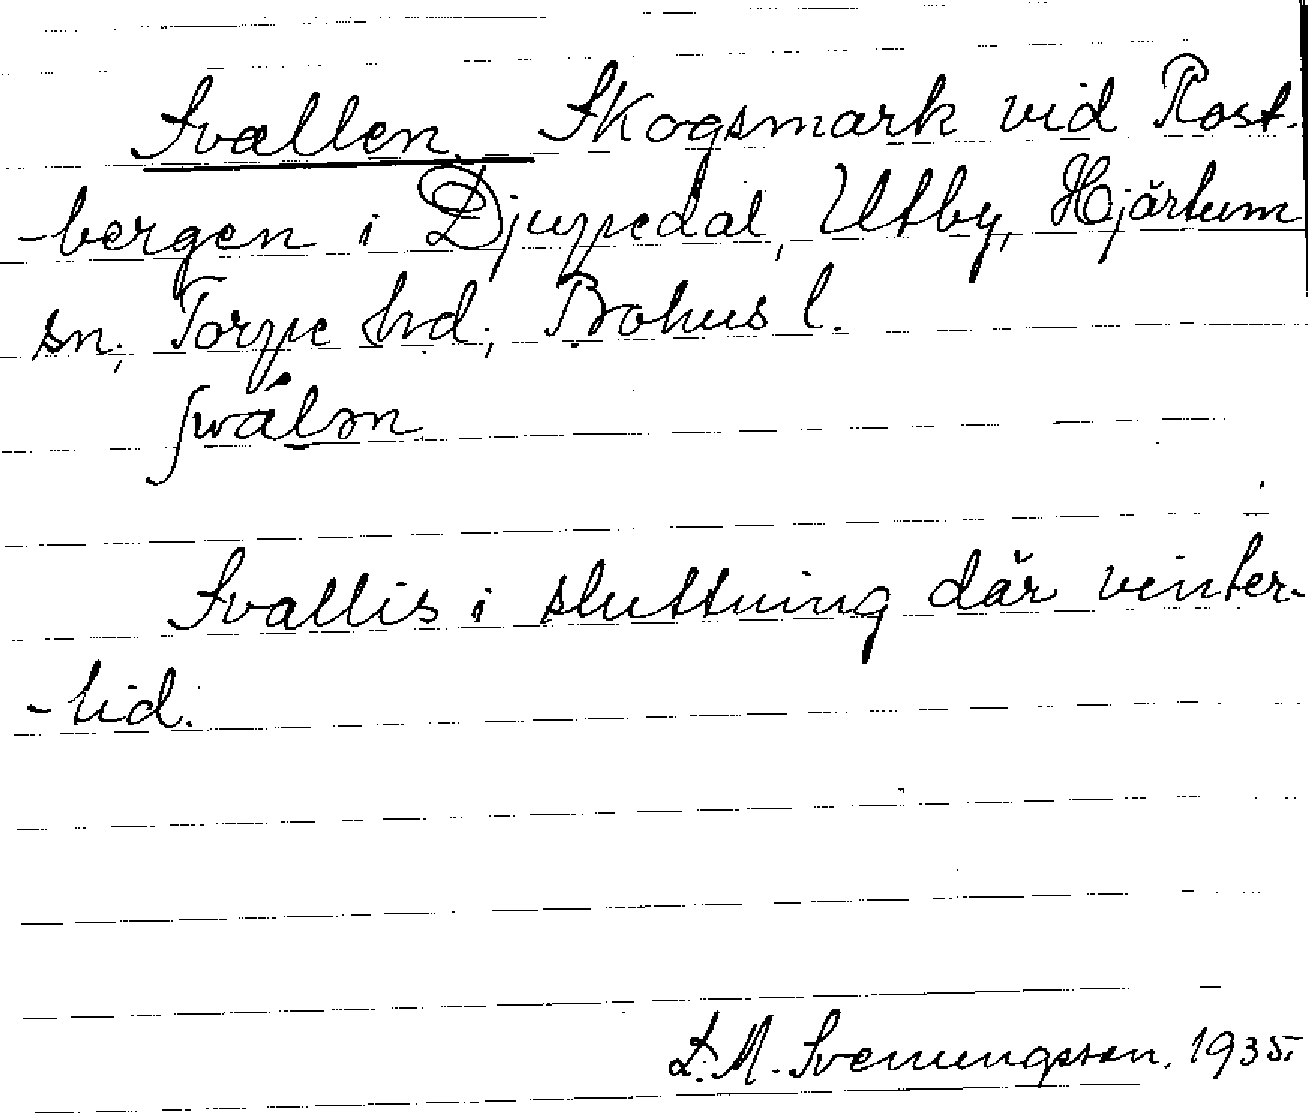 Svallen. Skogsmark vid Rost-
-bergen i Djupedal, Utby, Hjärtum
sn, Torpe hrd, Bohus l.
Svallis i sluttning där vinter-
-tid.
S. M. Svenungsson. 1935.